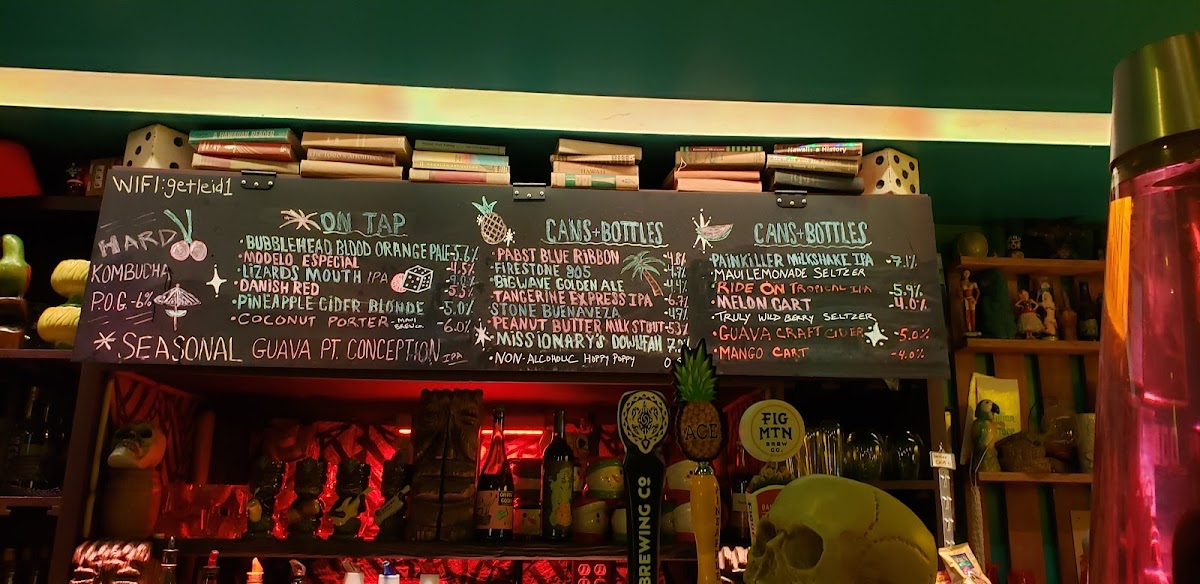 A HAWAIIAN READER
Hawaii: A History
HAWAII
WIFI:getleid1
HARD
KOMBUCHA
P.O.G-6%
ON TAP
• BUBBLEHEAD BLOOD ORANGE PALE-5.6%
• MODELO ESPECIAL -4.5%
• LIZARDS MOUTH IPA
• DANISH RED
• PINEAPPLE CIDER BLONDE -5.0%
• COCONUT PORTER-MAUI BREW CO. -6.0%
* SEASONAL GUAVA PT. CONCEPTION IPA
CANS+BOTTLES
• PABST BLUE RIBBON -4.8%
• FIRESTONE 805 -4.7%
• BIGWAVE GOLDEN ALE -4.4%
• TANGERINE EXPRESS IPA -6.7%
• STONE BUENAVEZA
• PEANUT BUTTER MILK STOUT-5.3%
• MISSIONARY'S DOWNFALL
• NON-ALCOHOLIC HOPPY POPPY
CANS+BOTTLES
• PAINKILLER MILKSHAKE IPA -7.1%
• MAUI LEMONADE SELTZER
• RIDE ON TROPICAL IPA -5.9%
• MELON CART -4.0%
• TRULY WILD BERRY SELTZER
• GUAVA CRAFT CIDER -5.0%
• MANGO CART -4.0%
BREWING CO
ACE
FIG
MTN
BREW
CO.